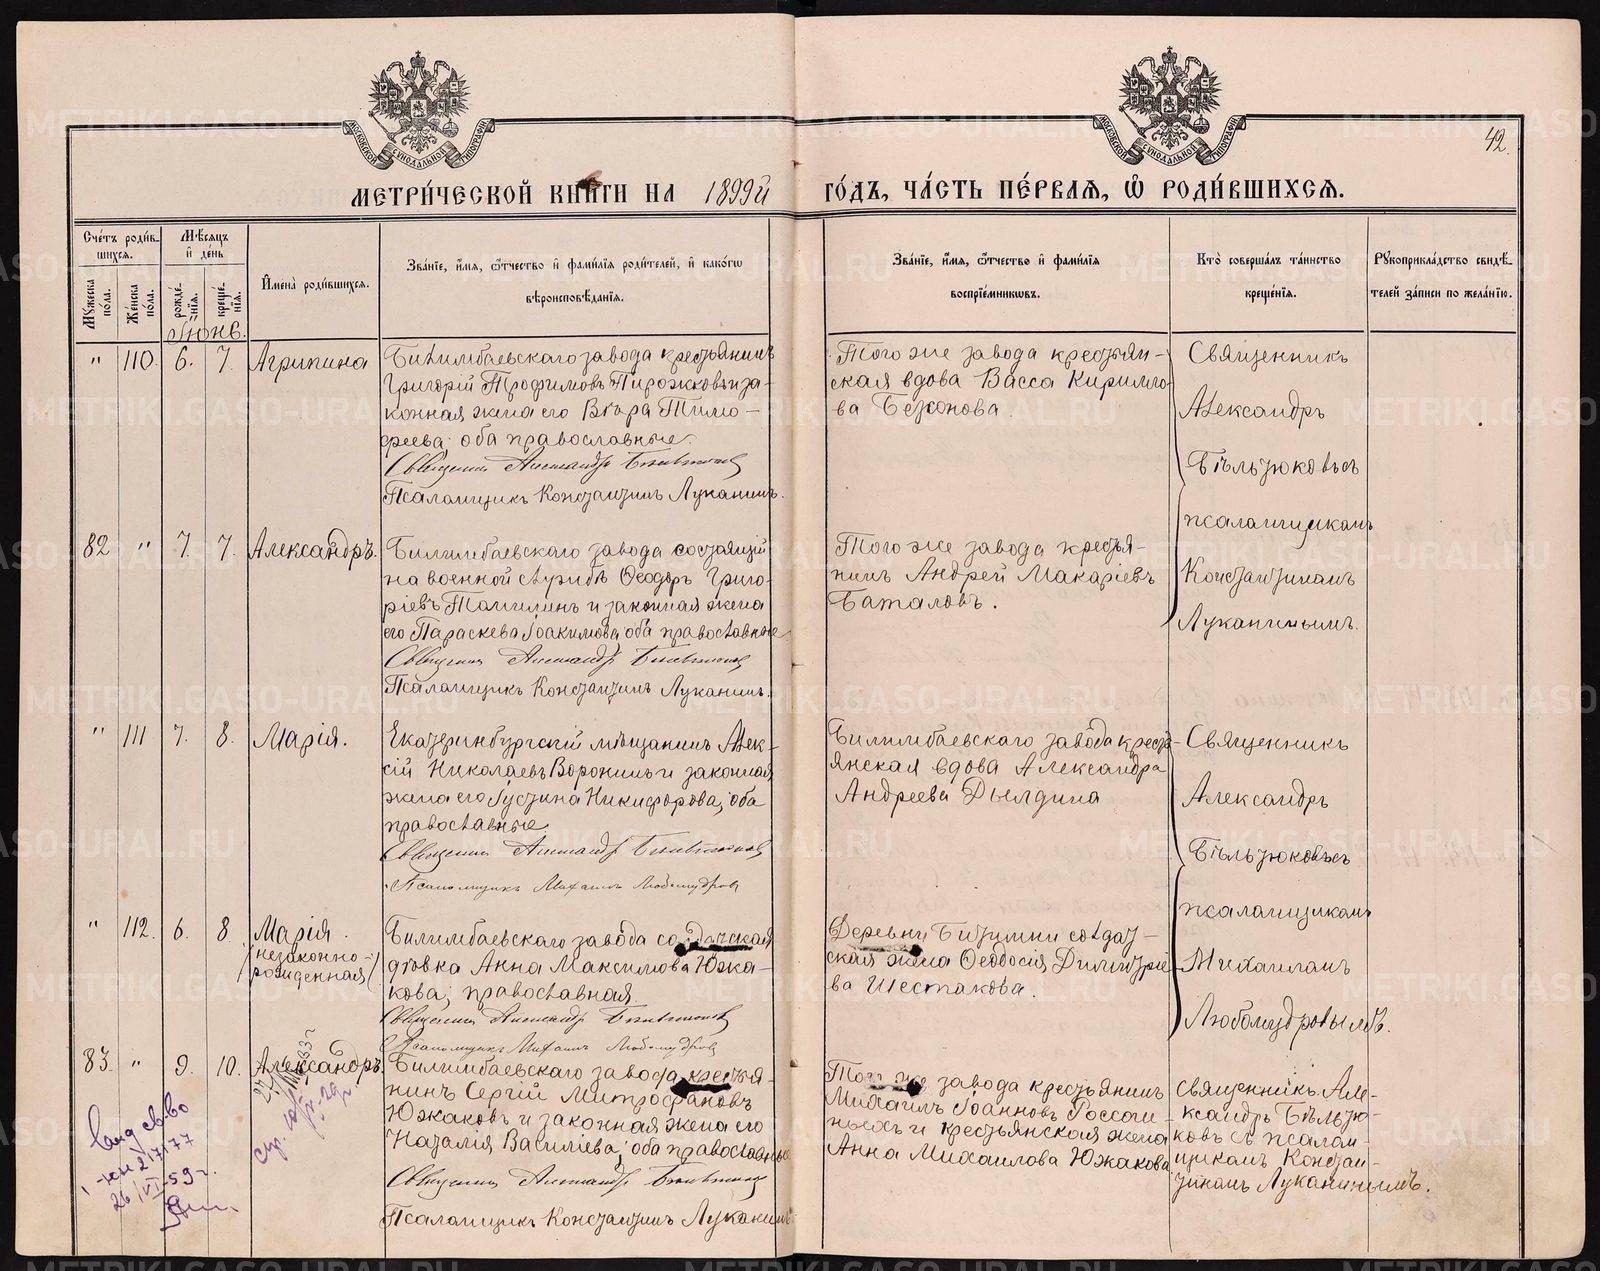 42
МЕТРИ́ЧЕСКОЙ КНИ́ГИ НА 1899й ГО́ДЪ, ЧА́СТЬ ПЕ́РВАЯ, Ѿ РОДИ́ВШИХСЯ.
Сче́тъ роди́в-
шихся.
Мѣ́сяцъ
и де́нь
Мꙋ́жеска
по́ла.
Же́нска
по́ла.
рожде́-
нїя.
креще́-
нїя.
Имена̀ роди́вшихся.
Зва́нїе, и́мя, ѻ́тчество и фами́лїя роди́телей, и како́гѡ
вѣроисповѣ́данїя.
Зва́нїе, и́мя, ѻ́тчество и фами́лїя
воспрїе́мникѡвъ.
Кто̀ соверша́лъ та́инство
креще́нїя.
Рꙋкоприкла́дство свидѣ́-
телей за́писи по жела́нїю.
" 110. 6. 7. Агрипина
Билимбаевскаго завода крестьянинъ
Григорій Трофимовъ Пирожковъ и за-
конная жена его Вѣра Тимо-
феева; оба православные.
Священник Александръ Бѣльтюковъ
Псаломщикъ Константинъ Луканинъ.
Того же завода крестьян-
ская вдова Васса Кирилло-
ва
Священникъ
Александръ
Бѣльтюковъ съ
псаломщикомъ
Константиномъ
Луканинымъ.
82 " 7. 7. Александръ.
Билимбаевскаго завода состоящій
на военной службѣ Ѳеодоръ Григо-
ріевъ Томилинъ и законная жена
его Параскева Іоакимова, оба православные
Священник Александръ Бѣльтюковъ
Псаломщикъ Константинъ Луканинъ.
Того же завода крестья-
нинъ Андрей Макаріевъ
Баталовъ.
" 111 7. 8. Марія.
Екатеринбургскій мѣщанинъ Алек-
сій Николаевъ Воронинъ и законная
жена его Іустина Никифорова; оба
православные
Священник Александръ Бѣльтюковъ
Псаломщикъ Михаилъ Любомудровъ
Билимбаевскаго завода кресть-
янская вдова Александра
Андреева Дылдина
Священникъ
Александръ
Бѣльтюковъ съ
псаломщикомъ
Михаиломъ
Любомудровымъ.
" 112. 6. 8. Марія.
(незаконно-
рожденная)
Билимбаевскаго завода солдатская
дѣвка Анна Максимова Южа-
кова; православная.
Священник Александръ Бѣльтюковъ
Псаломщикъ Михаилъ Любомудровъ
Деревни Битимки солдат-
ская жена Ѳеодосія Димитріе-
ва Шестакова.
83. " 9. 10. Александръ.
Билимбаевскаго завода крестья-
нинъ Сергій Митрофановъ
Южаковъ и законная жена его
Наталія Василіева; оба православные
Священник Александръ Бѣльтюковъ
Псаломщикъ Константинъ Луканинъ
Того же завода крестьянинъ
Михаилъ Іоанновъ Россом-
и крестьянская жена
Анна Михаилова Южакова
Священникъ Але-
ксандръ Бѣльтю-
ковъ съ псалом-
щикомъ Констан-
тиномъ Луканинымъ.